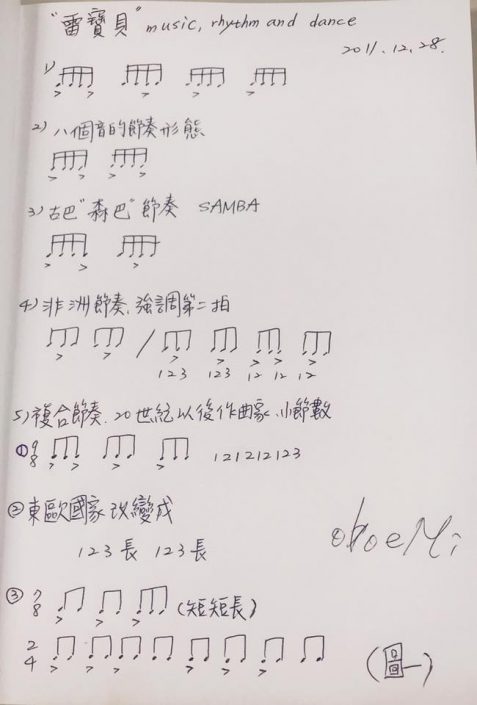 "雷寶貝" music, rhythm and dance
2011.12.28.
1)
2) 八個音的節奏形態
3) 古巴"森巴"節奏 SAMBA
4) 非洲節奏, 強調第二拍
/
123 123 12 12 12
5) 複合節奏. 20世紀以後作曲家. 小節數
① 9/8 121212123
② 東歐國家改變成
123長 123長
oboeMi
③ 7/8 (短短長)
2/4
(圖一)